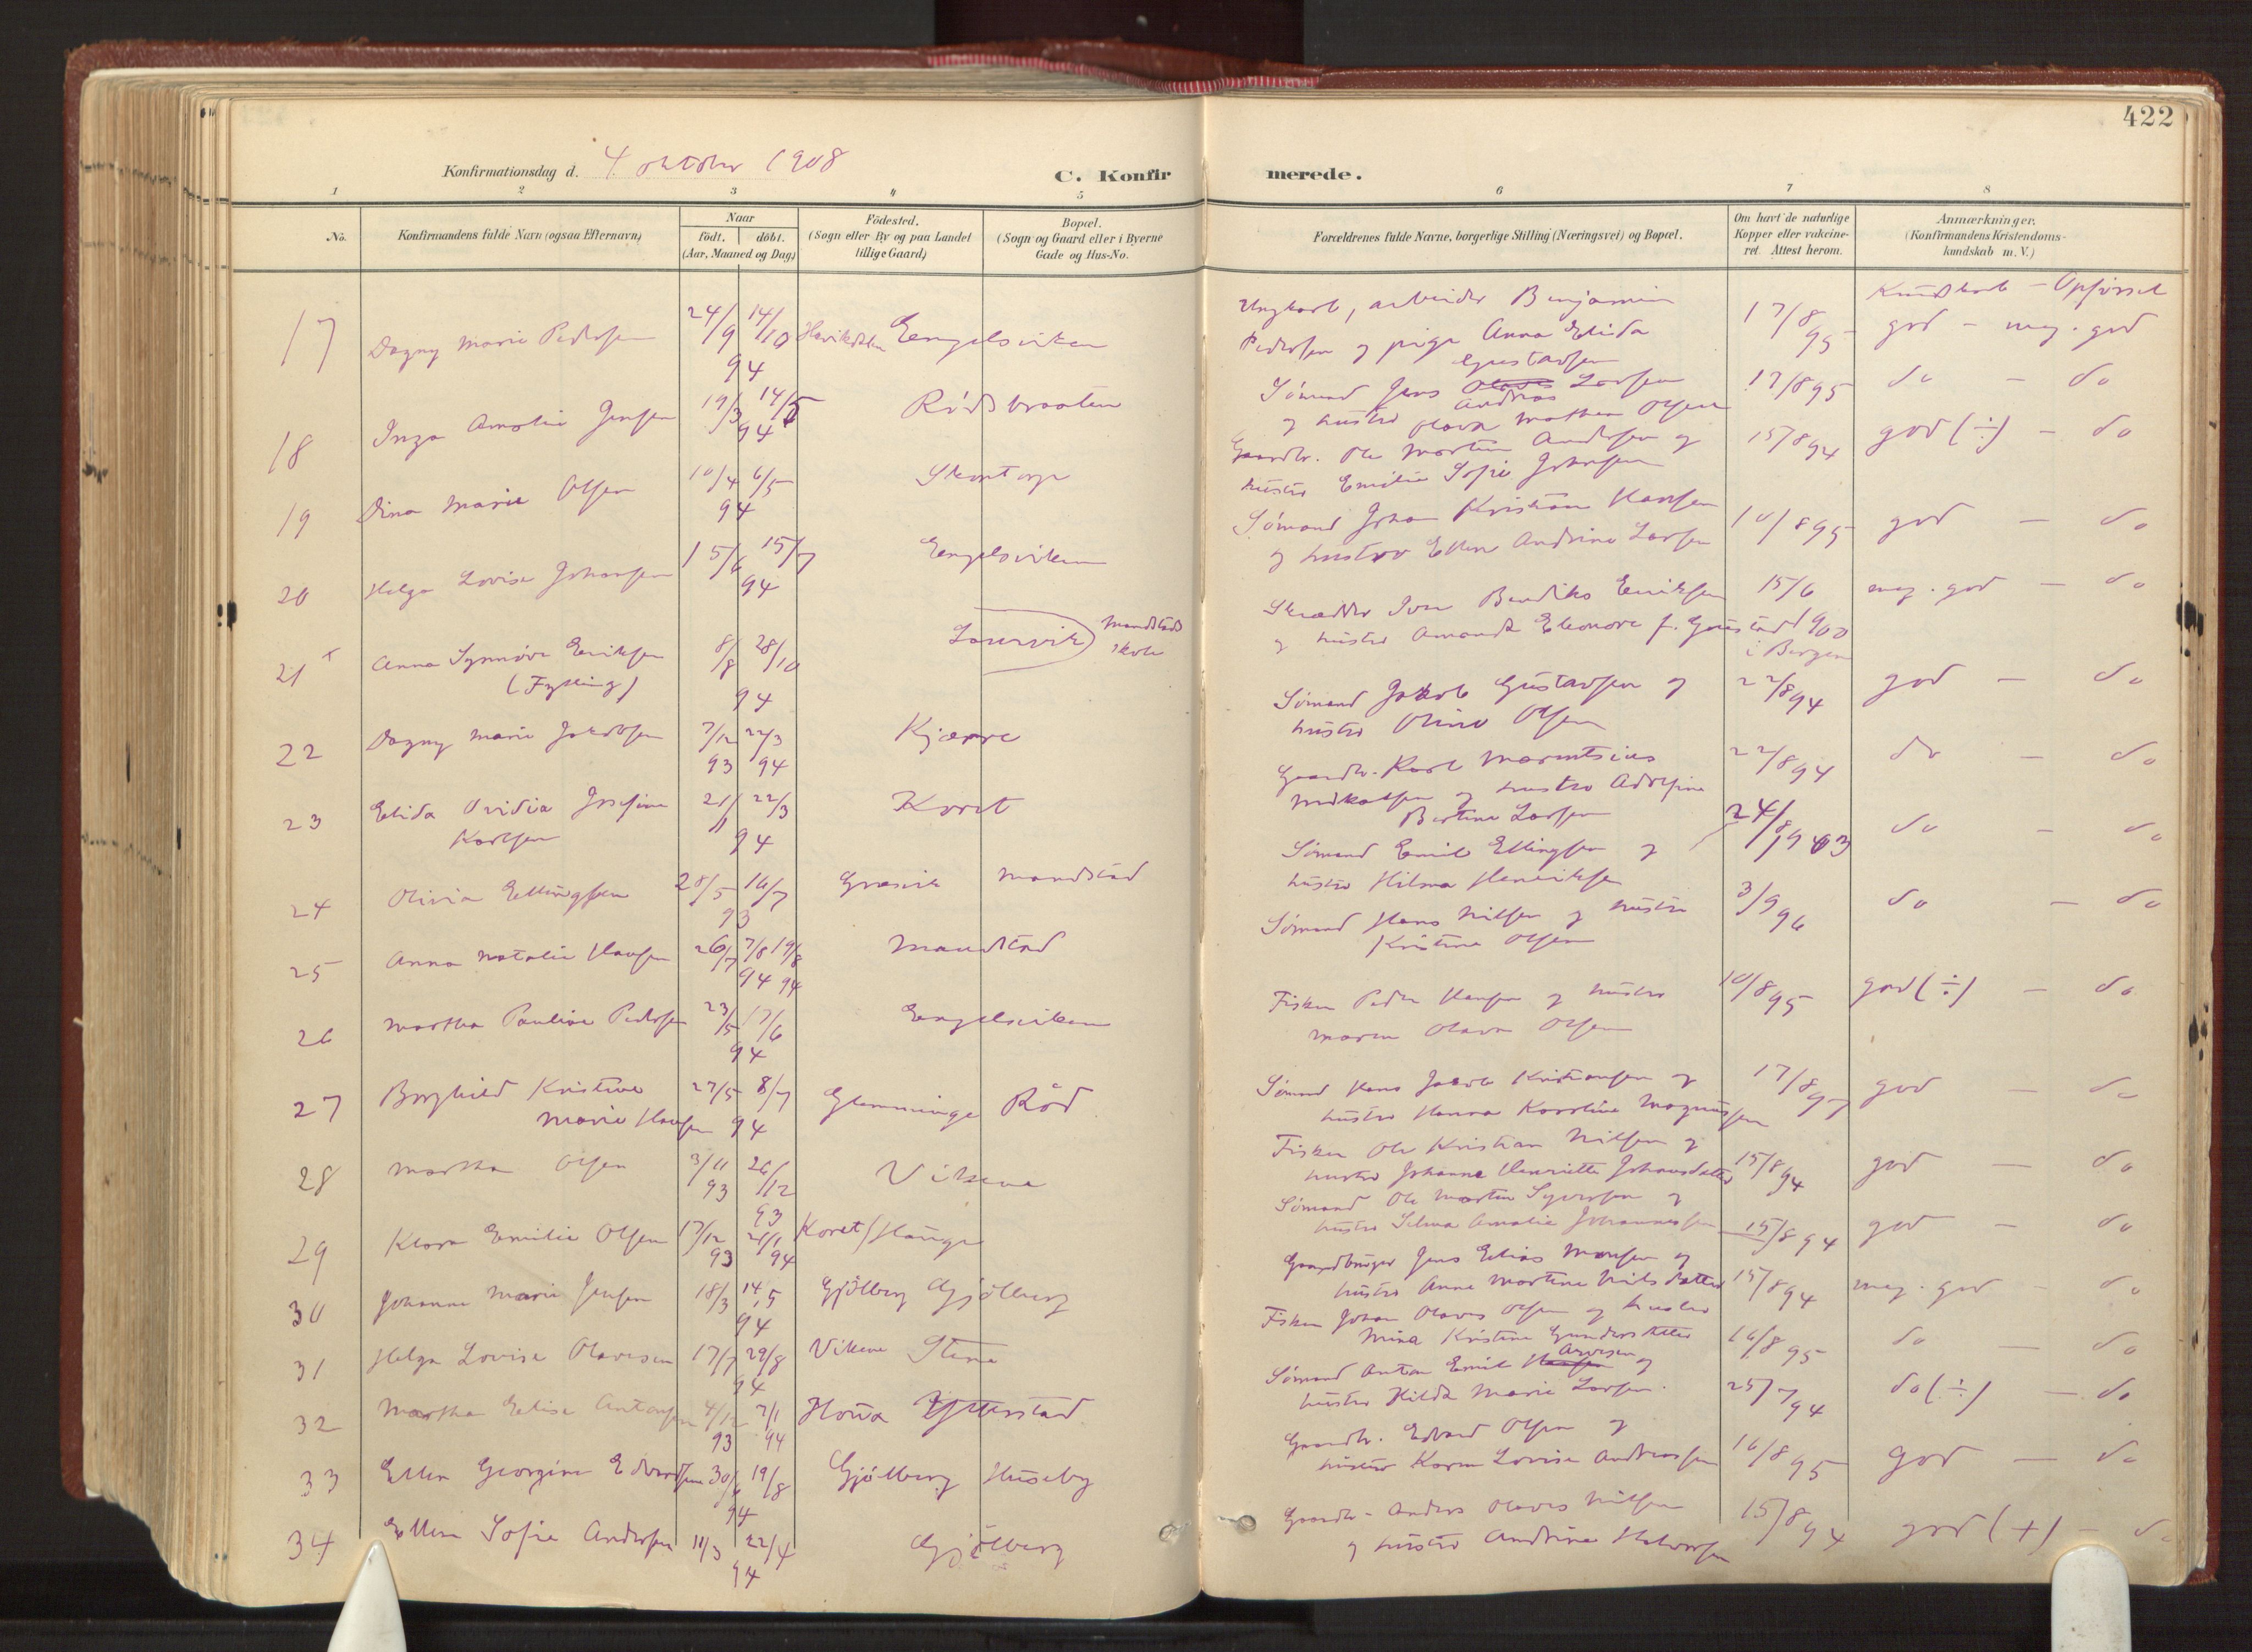 422
Konfirmationsdag d. 4. oktober 1908
C. Konfirmerede.
1 2 3 4 5 6 7 8
No.
Konfirmandens fulde Navn (ogsaa Efternavn)
Naar
födt. döbt.
(Aar, Maaned og Dag)
Födested.
(Sogn eller By og paa Landet
tillige Gaard)
Bopæl.
(Sogn og Gaard eller i Byerne
Gade og Hus-No.
Forældrenes fulde Navne, borgerlige Stilling (Næringsvei) og Bopæl.
Om havt de naturlige
Kopper eller vakcine-
ret. Attest herom.
Anmærkninger.
(Konfirmandens Kristendoms-
kundskab m. V.)
Kundskab - Opførsel
17 Dagny Marie Pedersen 24/9 14/10 94 Engelsviken
Ungkarl, arbeider Benjamin
Pedersen og pige Anna Elida
Gustavsen
17/8 95 god - meg. god
18 Inga Amalie Jensen 19/3 14/5 94 Rödsbraaten
Sømand Jens Andreas Larsen
og hustru Olava Mathea Olsen
17/8 95 do - do
19 Dina Marie Olsen 10/4 6/5 94 Skontorp
Gaardbr. Ole Martin Andersen og
hustru Emilie Sofie Johansen
15/8 94 god (÷) - do
20 Helga Lovise Johansen 15/6 15/7 94 Engelsviken
Sømand Johan Kristian Hansen
og hustru Ellen Andrine Larsen
10/8 95 god - do
21 + Anna Synnöve Eriksen
(Fylling)
8/8 28/10 94 Laurvik Manstad
skole
Skrædder Iver Bendiks Eriksen
og hustru Amanda Eleonore f. Gustad
15/6 1900
i Bergen
meg. god - do
22 Dagny Marie Jakobsen 7/12 93 22/3 94 Kjærre
Sømand Jakob Gustavsen og
hustru Oline Olsen
22/8 94 god - do
23 Elida Ovidia Josefine
Karlsen
21/1 22/3 94 Koret
Gaardbr. Karl Marentsius
Mikalsen og hustru Adolfine
Bertine Larsen
22/8 94 do - do
24 Olivia Ellingsen 28/5 16/7 93 Græsvik Manstad
Sømand Emil Ellingsen og
hustru Hilma Henriksen
24/8 1903 do - do
25 Anna Natalie Hansen 26/7 7/8 94 19/8 94 Manstad
Sømand Hans Nilsen og hustru
Kristine Olsen
3/9 96 do - do
26 Martha Pauline Pedersen 23/5 17/6 94 Engelsviken
Fisker Peder Hansen og hustru
Maren Olava Olsen
10/8 95 god (÷) - do
27 Borghild Kristine
Marie Hansen
27/5 8/7 94 Glemminge Röd
Sømand Hans Jakob Kristiansen og
hustru Hanna Karoline Magnussen
17/8 97 god - do
28 Martha Olsen 3/11 93 26/12 93 Vikene
Fisker Ole Kristian Nilsen og
hustru Johanne Henriette Johansdatter
15/8 94 god - do
29 Klara Emilie Olsen 17/12 93 21/1 94 Koret/Hauge
Sømand Ole Martin Syversen og
hustru Selma Amalie Johannessen
15/8 94 god - do
30 Johanne Marie Jensen 18/3 14/5 94 Gjölberg Gjölberg
Gaardbruger Jens Elias Monsen og
hustru Anne Martine Nilsdatter
15/8 94 meg. god - do
31 Helga Lovise Olavesen 17/7 29/8 94 Vikene Stene
Fisker Johan Olaves Olsen og hustru
Mina Kristine Gundersdatter
16/8 95 do - do
32 Martha Elise Antonsen 4/12 93 7/1 94
Sømand Anton Emil Arvesen og
hustru Hilda Marie Larsen.
25/7 94 do (÷) - do
33 Ellen Georgine Edvardsen 30/6 19/8 94 Gjölberg Huseby
Gaardbr. Edvard Olsen og
hustru Karen Lovise Andreassen
16/8 95 god - do
34 Ellen Sofie Andersen 11/3 22/4 94 Gjölberg
Gaardbr. Anders Olaves Nilsen
og hustru Andrine Halvorsen
15/8 94 god (+) - do